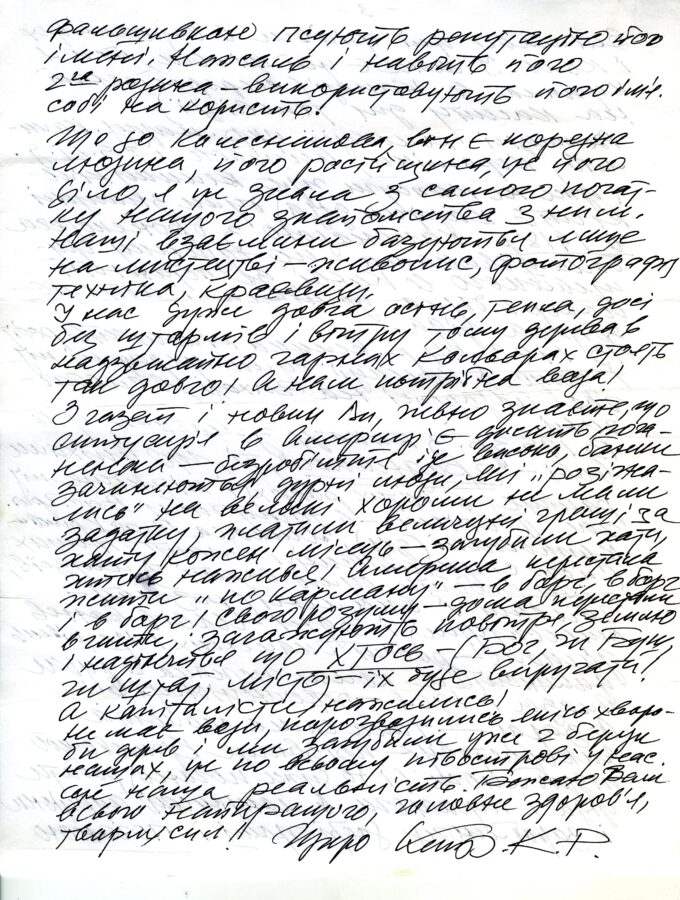 фальшивкою псують репутацію його
імені. Нажаль і навіть його
родина – використовують його ім'я
собі на користь.
Що до Колеснікова, він є порядна
людина, його
діло я це знала з самого почат-
ку нашого знайомства з ним.
Наші взаємини базуються лише
на мистецтві – живопис, фотографія
техніка, краєвиди.
У нас дуже довга осінь, тепла, досі
без штормів і вітру тому дерева в
надзвичайно гарних кольорах стоять
так довго! А нам потрібна вода!
З газет і новин Ви, певно знаєте, що
ситуація в Америці є досить пога-
ненька – безробіття іде високо, банки
зачиняються дурні люди, які „розіжа-
лись" на великі хороми не мали
задатку, платили величезні гроші за
хату кожен місяць – загубили хати,
Америка перестала
жити „по карману" – в борг, в борг
і в борг! Свого розуму дома
вчити, загажують повітря, землю
і надіються що ХТОСЬ – (Бог, чи Буш,
чи штат, місто) – їх буде виручати!
А капіталісти нажились!
Немає води, порозводились якісь хворо-
би дерев і ми загубили уже 2 берези
наших, це по всьому півострові у нас.
Це наша реальність. Бажаю Вам
всього найкращого, головне здоров'я,
творчих сил! Щиро К.Р.